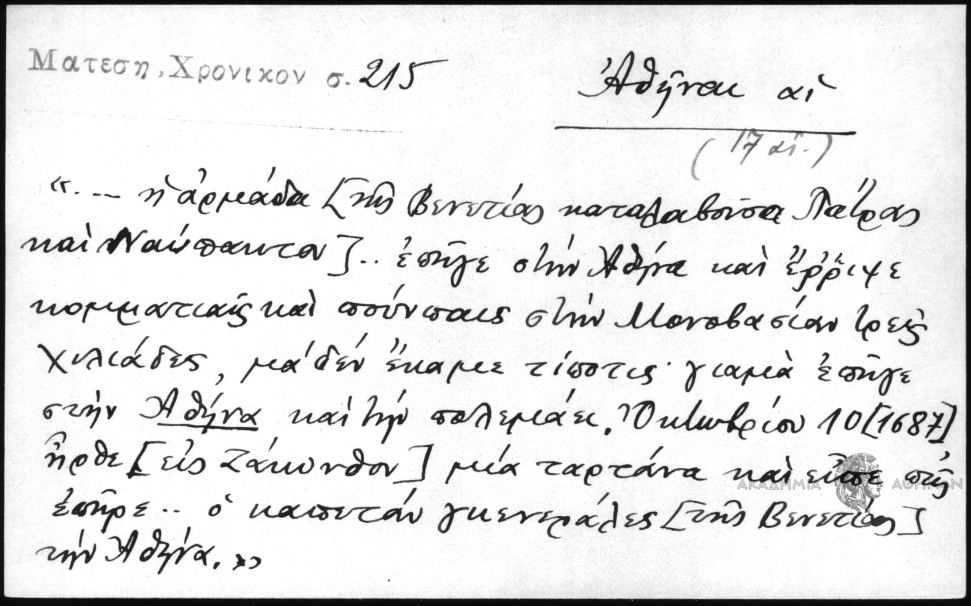 Ματεση, Χρονικον σ. 215
Ἀθῆναι αἱ
(17 αἰ.)
«... ἡ ἀρμάδα [τῆς Βενετίας καταλαβοῦσα Πάτρας
καὶ Ναύπακτον].. ἐπῆγε στὴν Ἀθήνα καὶ ἔρριψε
κομματιαῖς καὶ μπόμπαις στὴν Μονοβασίαν τρεῖς
χιλιάδες, μὰ δὲν ἔκαμε τίποτις· γιαμὰ ἐπῆγε
στὴν Ἀθήνα καὶ τὴν πολεμάει. Ὀκτωβρίου 10 [1687]
ἦρθε [εἰς Ζάκυνθον] μία ταρτάνα καὶ εἶπε πῶς
ἐπῆρε.. ὁ καπετάν γκενεράλες [τῆς Βενετίας]
τὴν Ἀθήνα.»
ΑΚΑΔΗΜΙΑ ΑΘΗΝΩΝ